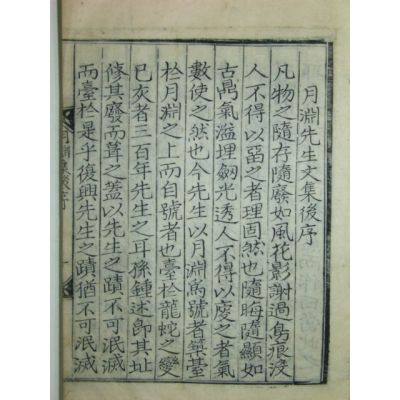 月淵先生文集後序
凡物之隨存隨廢如風花影謝過鳥痕沒
人不得以畱之者理固然也隨晦隨顯如
古鼎氣溢埋劒光透人不得以廋之者氣
數使之然也今先生以月淵爲號者築臺
扵月淵之上而自號者也臺扵龍蛇之變
已灰者三百年先生之耳孫鍾述卽其址
修其廢而葺之盖以先生之蹟不可泯滅
而臺扵是乎復興先生之蹟猶不可泯滅
月淵集後序